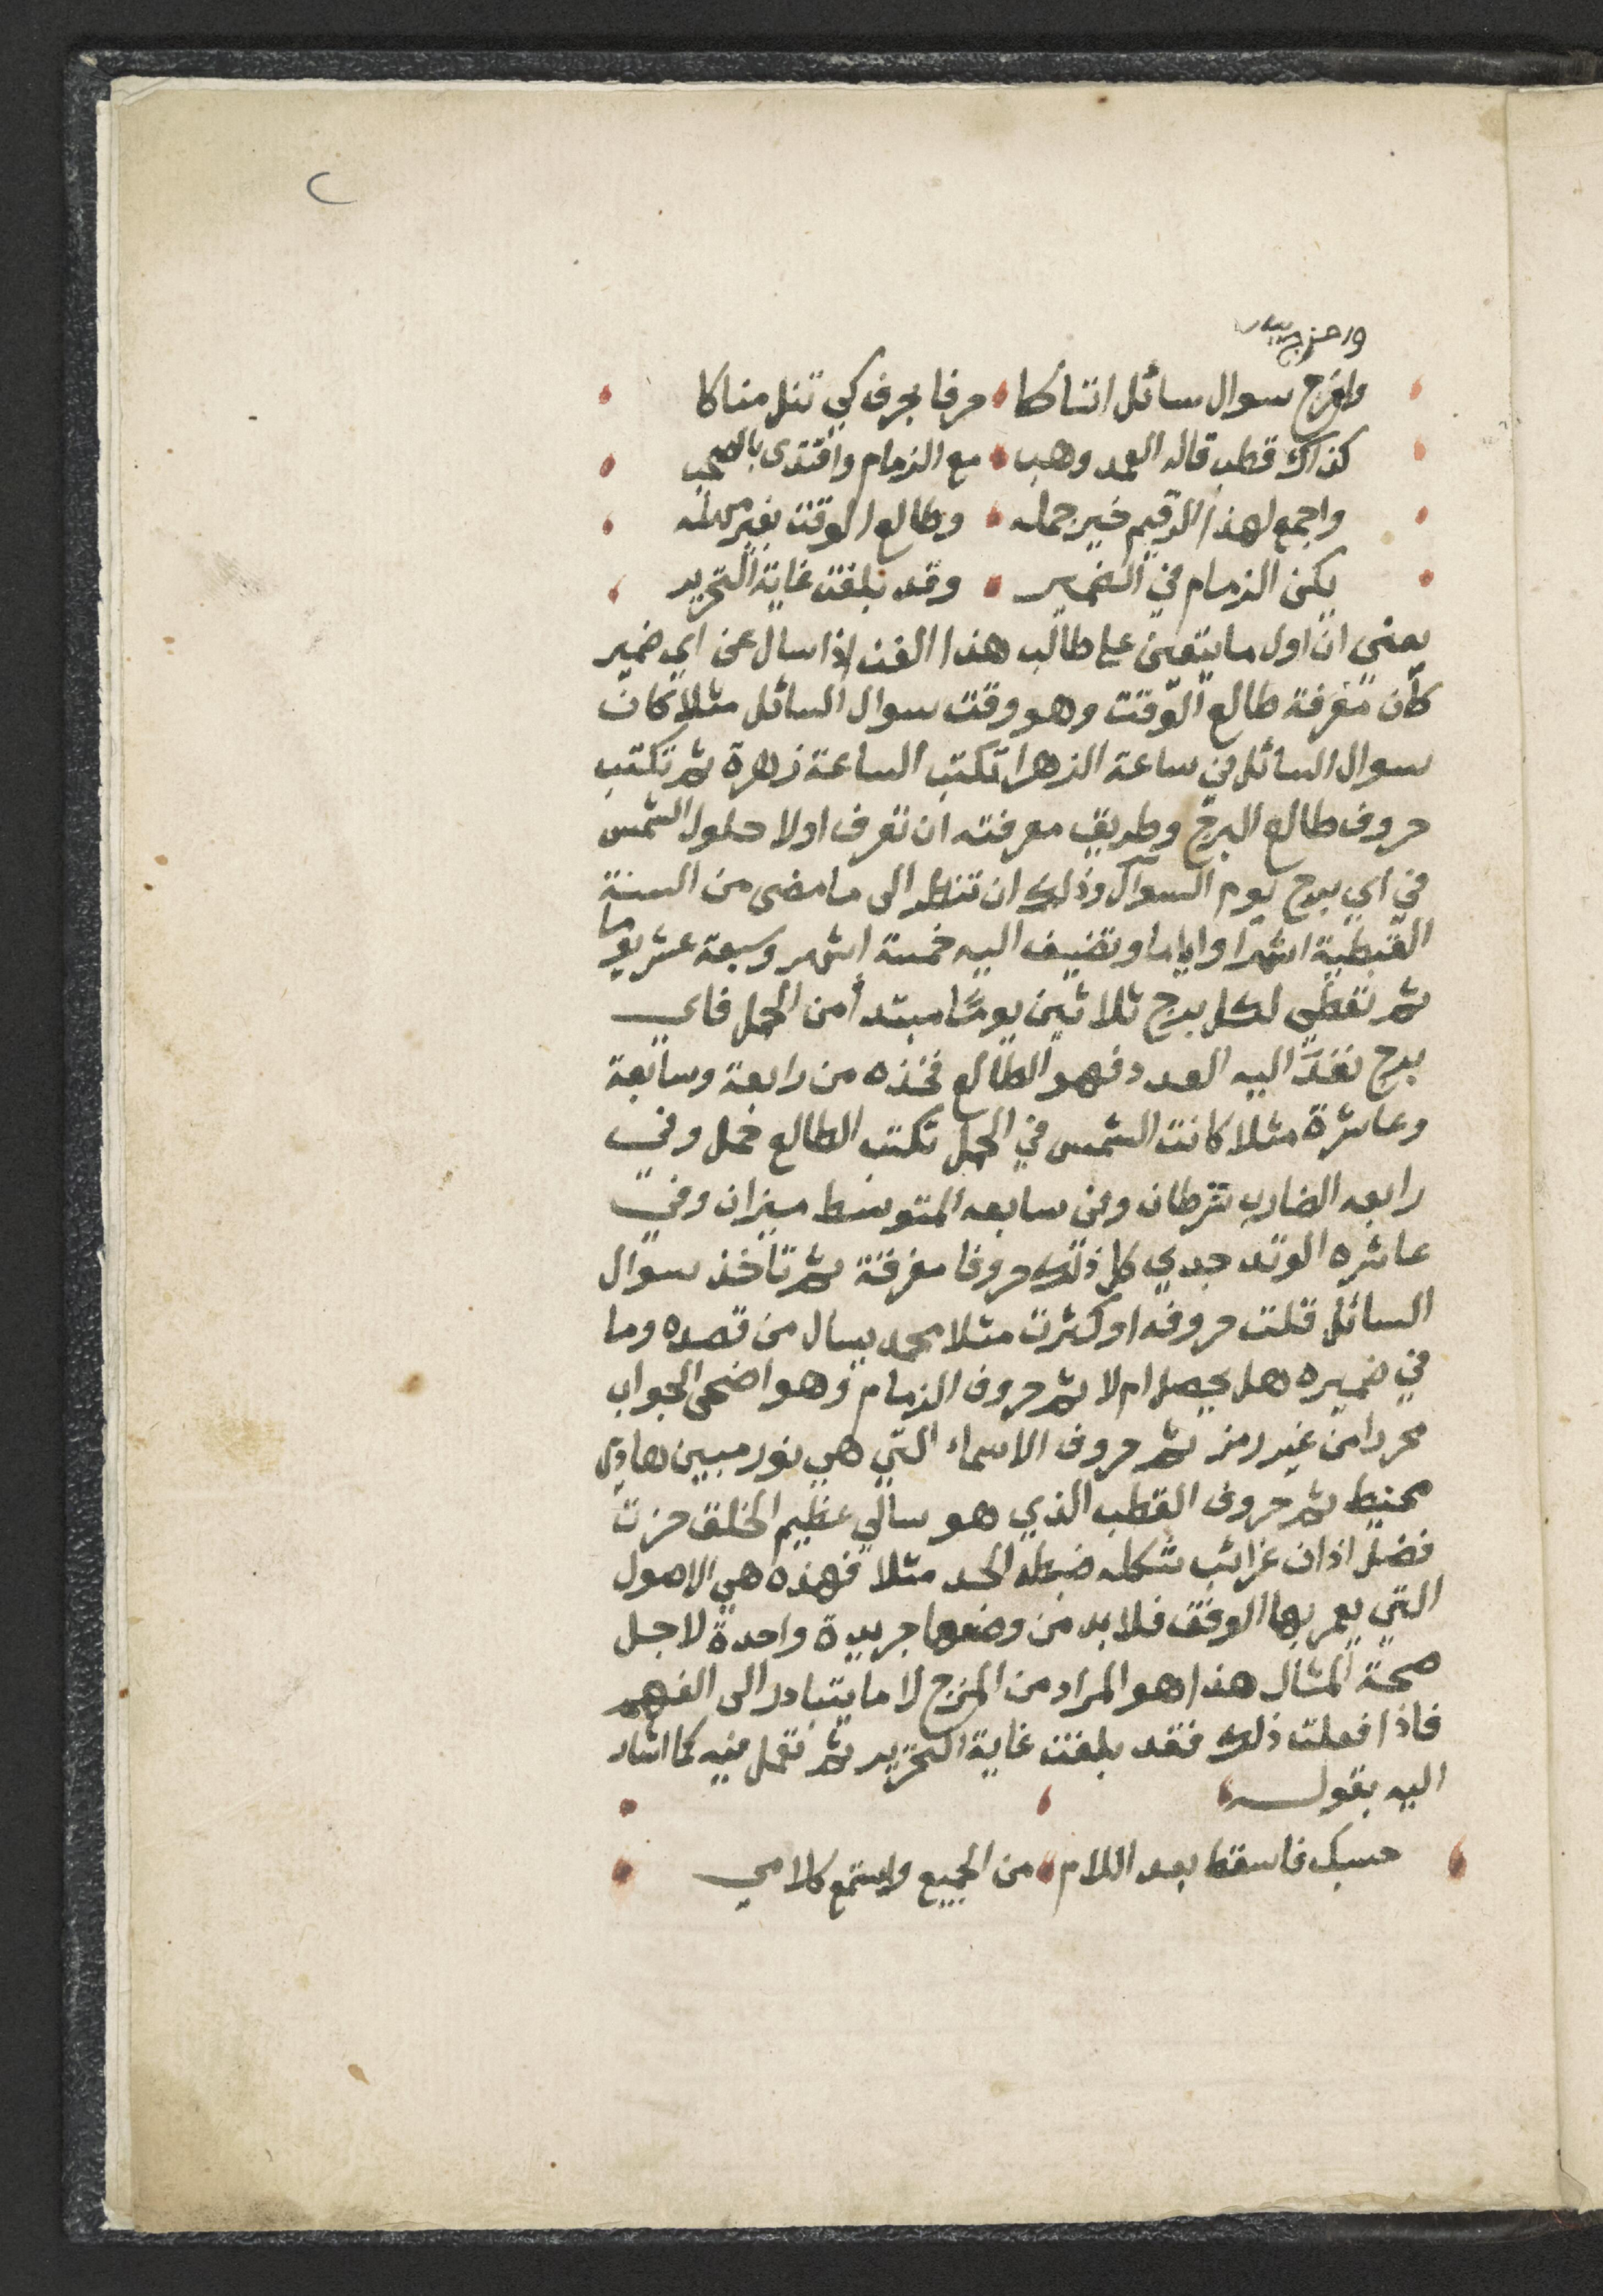 وامزج
وامزج سوال سائل اتتاكا حرفا بحرف كي تنل مناكا
كذاك قطب قاله العبد وهب مع الزمام واقتدى بالصحب
واجمع لهذا الرقيم خير جمله وطالع الوقت بغير مهله
يكن الزمام في الضمير وقد بلغت غاية التحرير
يعني ان اول ما يتعين على طالب هذا الفن اذا سال عن اي ضمير
كان معرفة طالع الوقت وهو وقت سوال السائل مثلا كان
سوال السائل في ساعة الزهرا تكتب الساعة زهرة ثم تكتب
حروف طالع البرج وطريق معرفته ان تعرف اولا حلول الشمس
في اي برج يوم السوال وذلك ان تنظر الى ما مضى من السنة
القبطية اشهرا واياما وتضيف اليه خمسة اشهر وسبعة عشر يوما
ثم تعطي لكل برج ثلاثين يوما مبتدأ من الحمل فاي
برج نفذ اليه العدد فهو الطالع فخذه من رابعة وسابعة
وعاشرة مثلا كانت الشمس في الحمل تكتب الطالع حمل وفي
رابعه الضارب سرطان وفي سابعه المتوسط ميزان وفي
عاشره الوتد جدي كل ذلك حروفا مفرقة ثم تاخذ سوال
السائل قلت حروفه او كثرت مثلا محمد يسال من قصده وما
في ضميره هل يحصل ام لا ثم حروف الزمام وهو اضحى الجواب
محررا من غير رمز ثم حروف الاسماء التي هي نور مبين هادي
محيط ثم حروف القطب الذي هو سالي عظيم الخلق حزت
فضل اذان غرائب شكله ضبطه الجد مثلا فهذه هي الاصول
التي يعمر بها الوفق فلابد من وضعها جريدة واحدة لاجل
صحة المثال هذا هو المراد من المزج لا ما يتبادر الى الفهم
فاذا فعلت ذلك فقد بلغت غاية التحرير ثم تعمل فيه كما اشار
اليه بقوله
حسبك فاسقط بعد اللام من الجميع واستمع كلامي